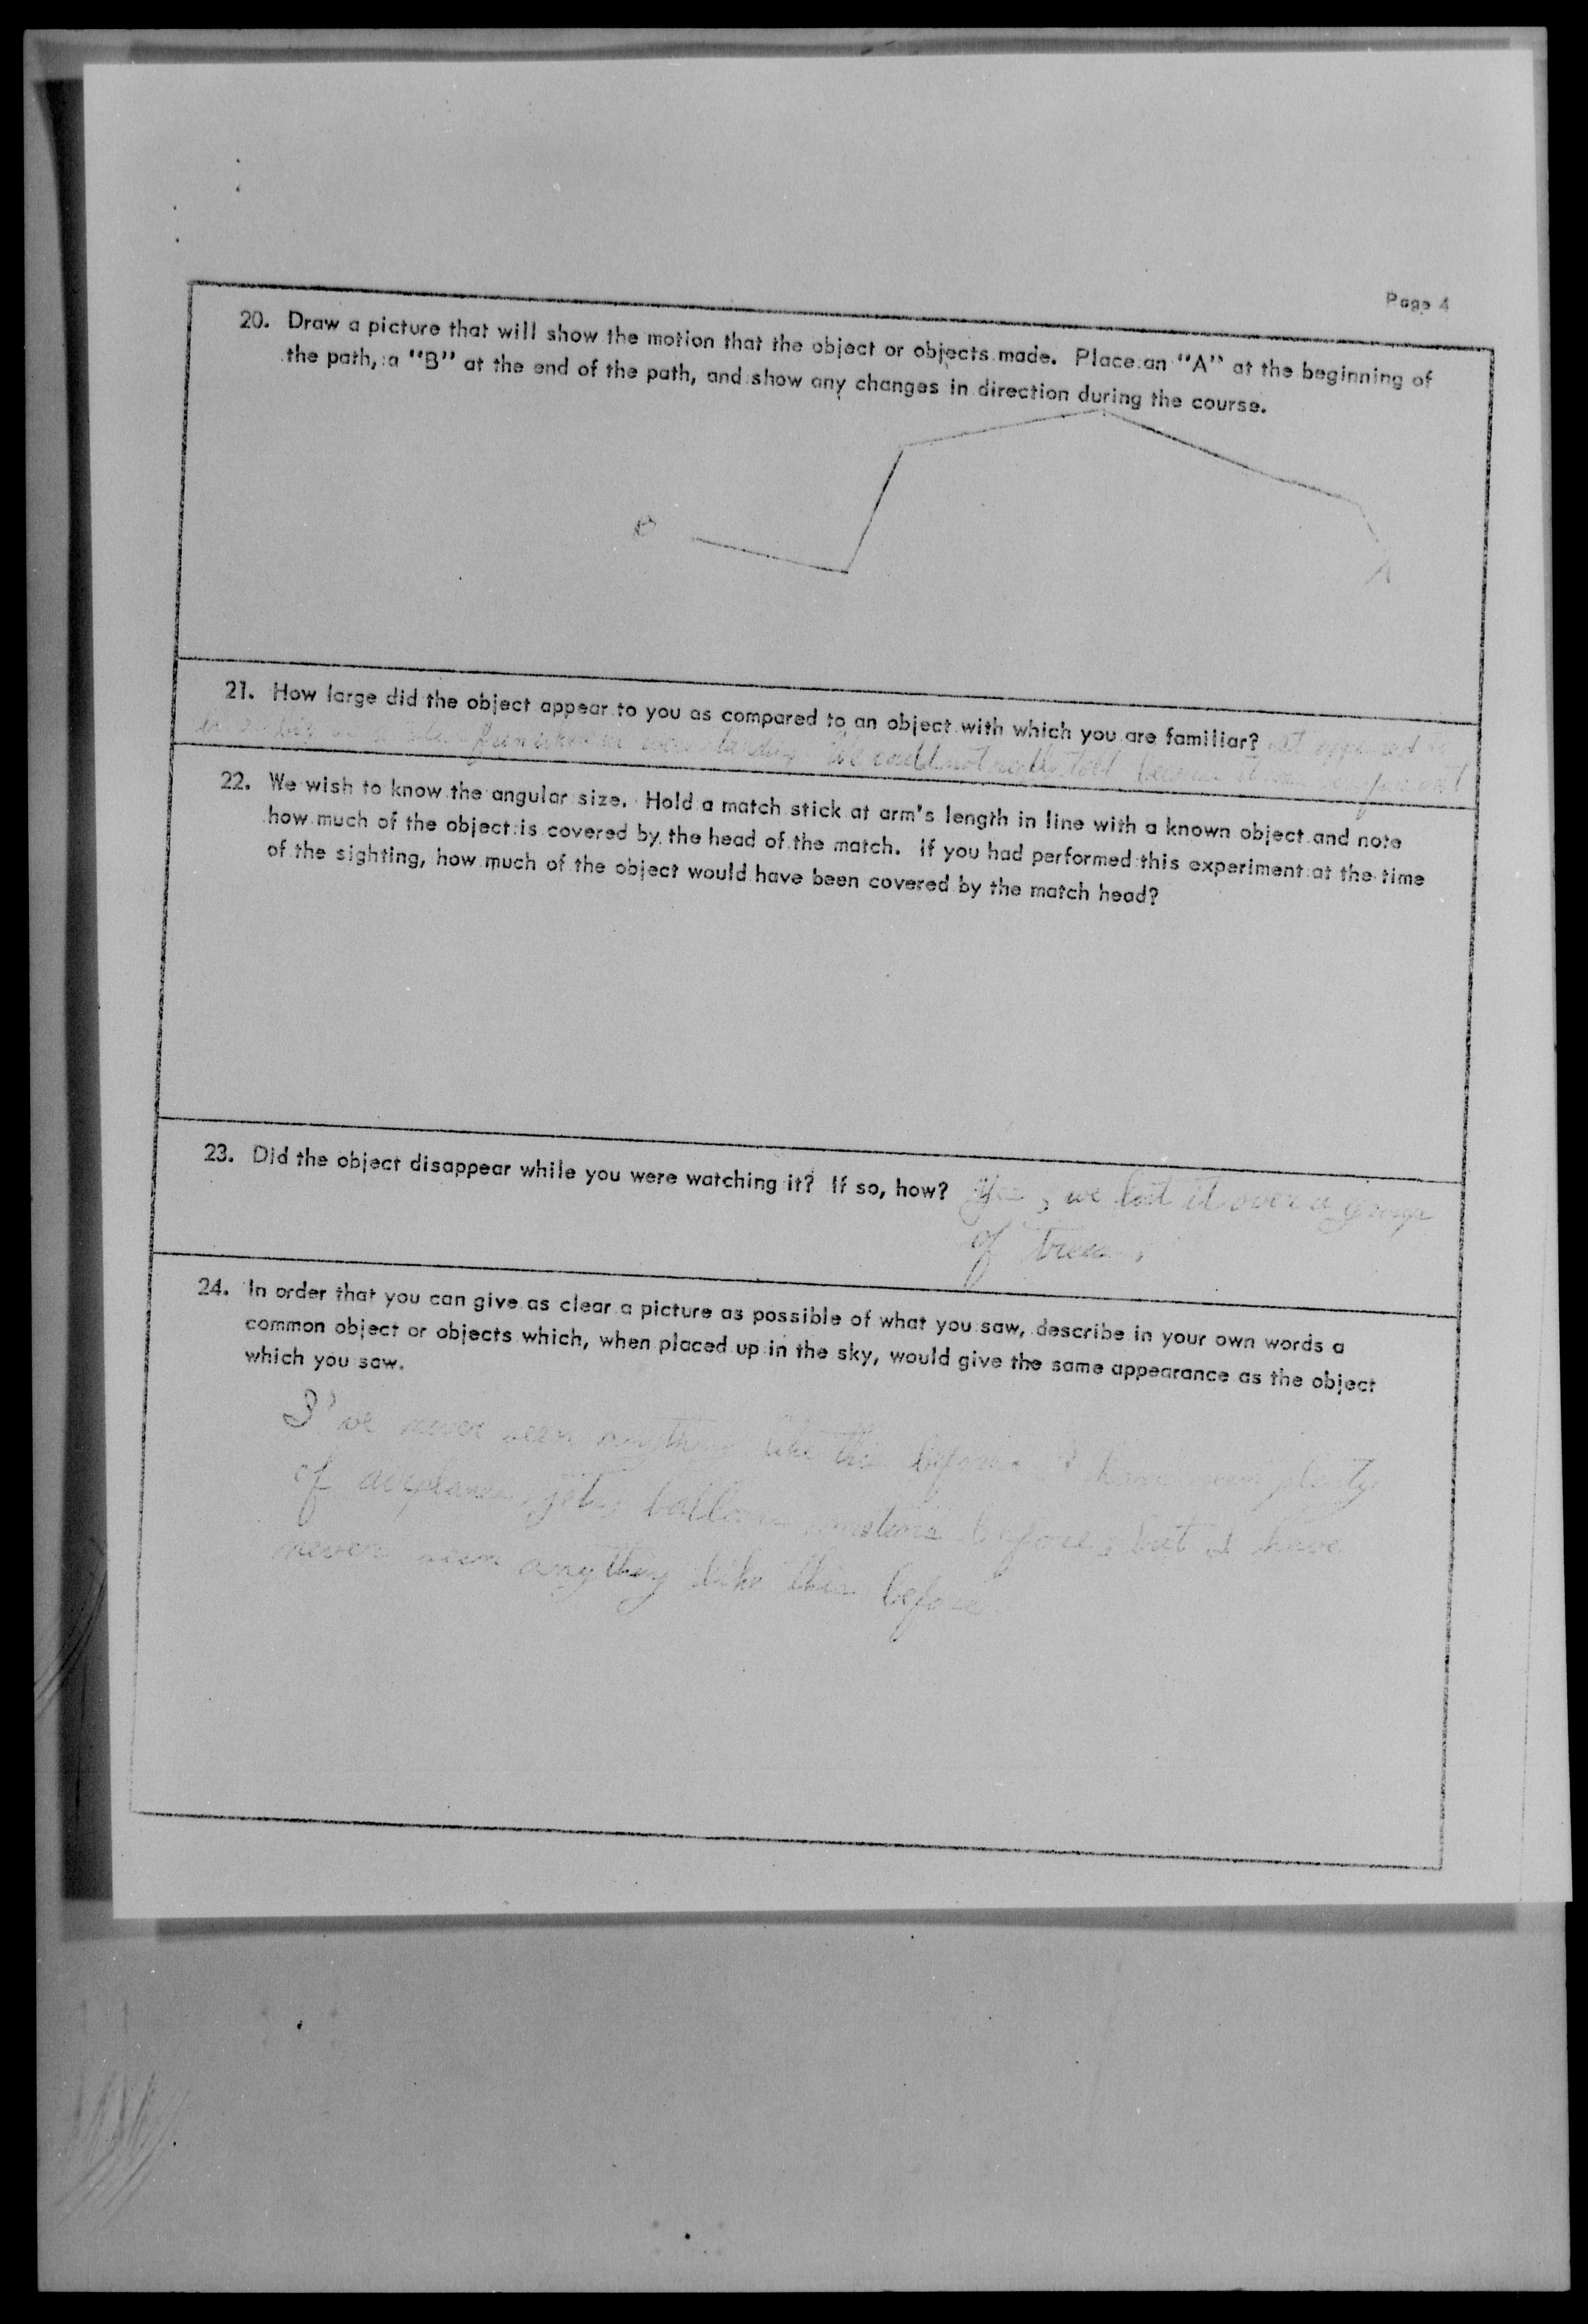 Page 4
20. Draw a picture that will show the motion that the object or objects made. Place an "A" at the beginning of
the path, a "B" at the end of the path, and show any changes in direction during the course.
B
A
21. How large did the object appear to you as compared to an object with which you are familiar? It appeared
from where we were standing. We could not really tell because it was
22. We wish to know the angular size. Hold a match stick at arm's length in line with a known object and note
how much of the object is covered by the head of the match. If you had performed this experiment at the time
of the sighting, how much of the object would have been covered by the match head?
23. Did the object disappear while you were watching it? If so, how? Yes, we lost it over a group
of trees.
24. In order that you can give as clear a picture as possible of what you saw, describe in your own words a
common object or objects which, when placed up in the sky, would give the same appearance as the object
which you saw.
I've never seen anything like this before. I have seen plenty
of airplanes, jets, before, but I have
never seen anything like this before